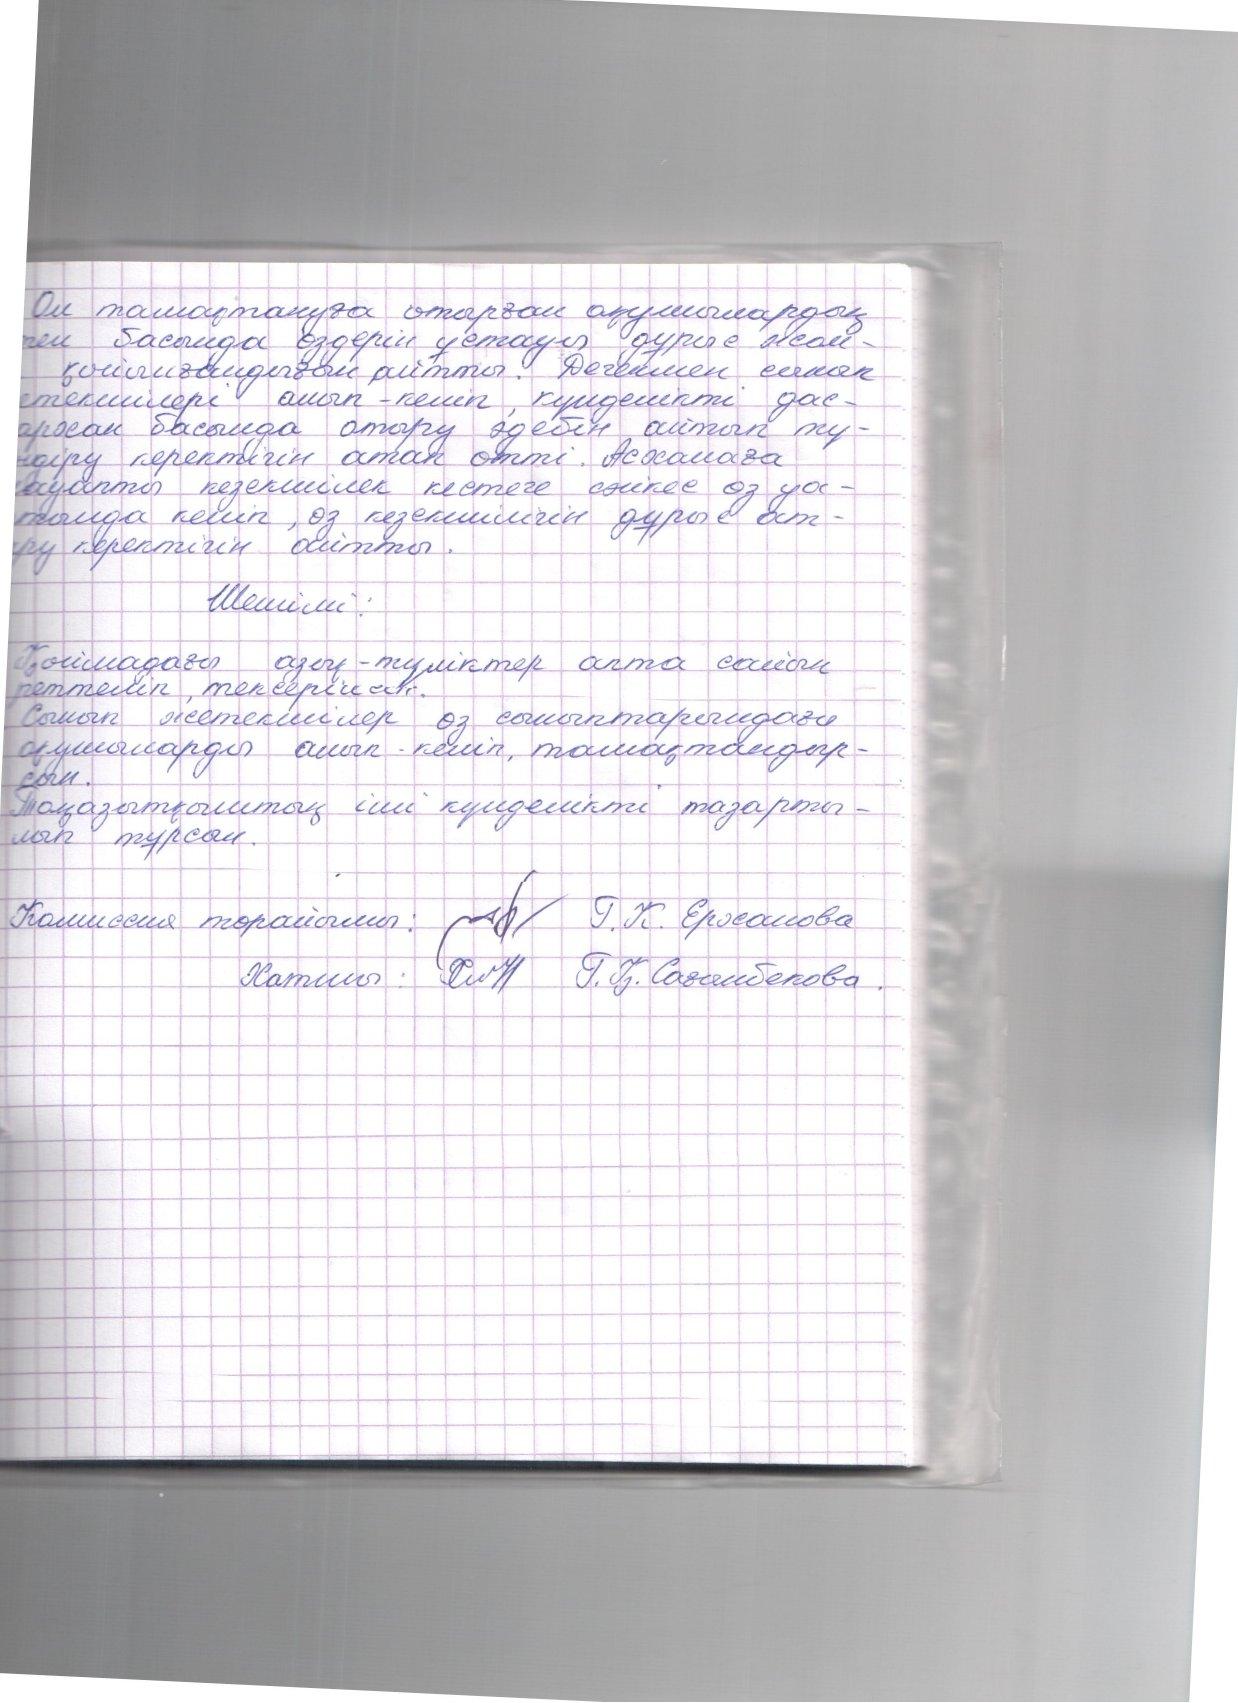 Ол тамақтануға отырған оқушылардың
басында өздерін ұстауы дұрыс жол-
қойылғандығын айтты. Дегенмен сынып
етекшілері алып-келіп, күнделікті дас-
арохан басында отыру әдебін айтып тү-
ндіру керектігін атап өтті. Асханаға
ауапты кезекшілек кестеге сәйкес өз уа-
тында келіп, өз кезекшілігін дұрыс ат-
ру керектігін айтты.
Шешімі:
Қоймадағы азық-түліктер апта сайын
реттеліп, тексерілсін.
Сынып жетекшілер өз сыныптарындағы
оқушыларды алып-келіп, тамақтандыр-
сын.
Тоңазытқыштың іші күнделікті тазарты-
лып тұрсын.
Комиссия төрайымы: Г. К. Ержанова
Хатшы: Г. Қ. Сағынбекова.